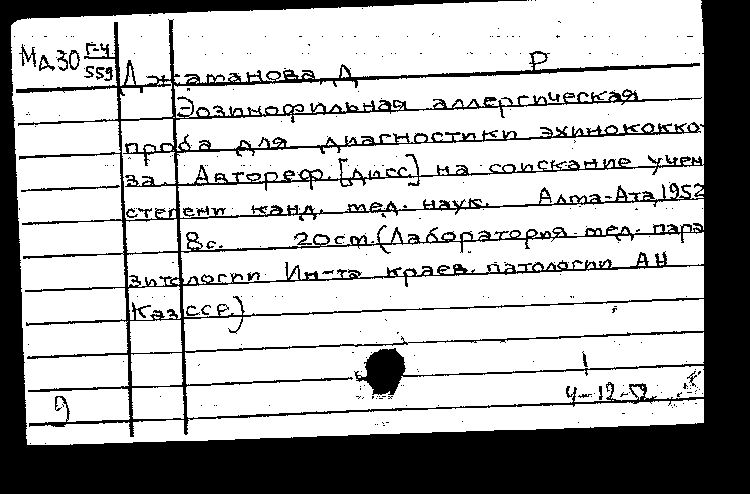 Мд30 Г-4/559
Джаманова, Д. Р
Эозинофильная аллергическая
проба для диагностики эхинококко-
за. Автореф. [дисс.] на соискание учен.
степени канд. мед. наук. Алма-Ата, 1952
8с. 20cm. (Лаборатория мед. пара-
зитологии Ин-та краев. патологии АН
Каз ССР.)
9
4-12-52